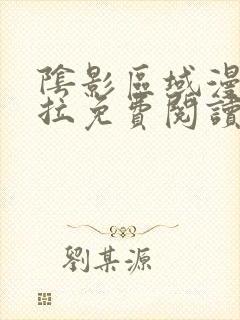 陰影區域漫
拉免費閱讀
劉某源